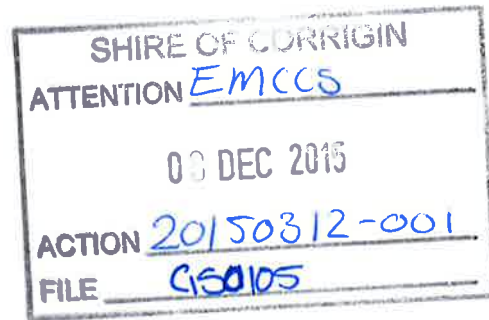 SHIRE OF CORRIGIN
ATTENTION EMCCS
DEC 2015
ACTION 20150312-001
FILE